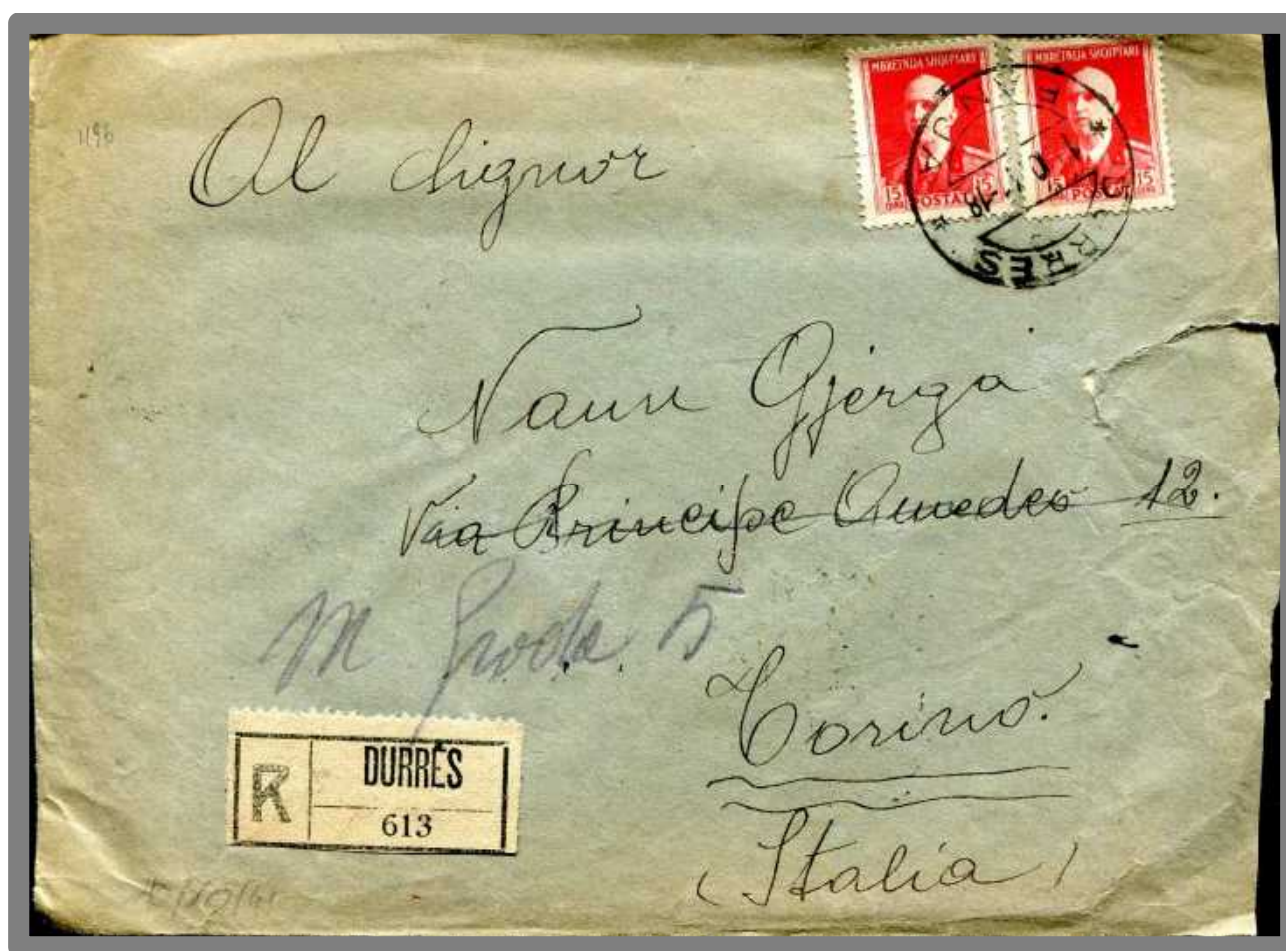 1196
MBRETNIJA SHQIPTARE
15 POSTAT 15
MBRETNIJA SHQIPTARE
15 POSTAT 15
DURRËS
Al Signor
Naum Gjerga
Via Principe Amedeo 12.
M 5
Torino.
(Italia)
R DURRËS
613